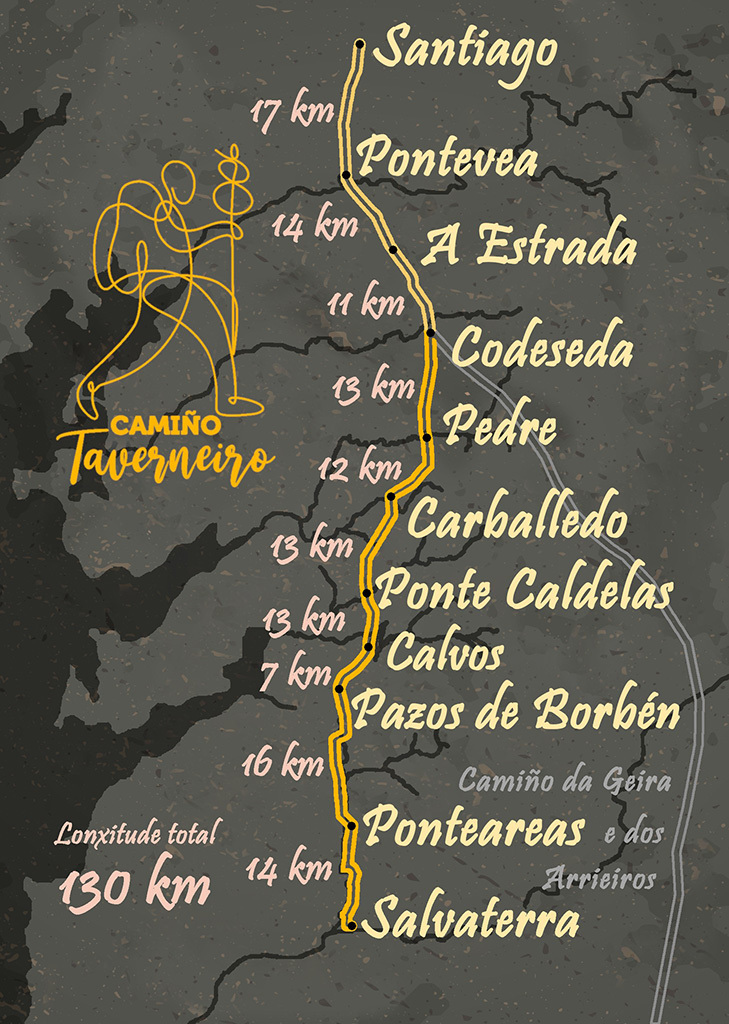 Santiago
17 km
Pontevea
14 km
A Estrada
11 km
Codeseda
13 km
Pedre
CAMIÑO
Taverneiro
12 km
Carballedo
13 km
Ponte Caldelas
13 km
Calvos
7 km
Pazos de Borbén
16 km
Camiño da Geira
e dos
Arrieiros
Ponteareas
Lonxitude total
130 km
14 km
Salvaterra